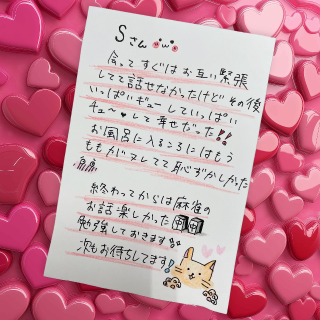 Sさん
会ってすぐはお互い緊張
してて話せなかったけど その後
いっぱいギューしていっぱい
チュ〜♥して幸せだった!!
お風呂に入るころにはもう
ももがヌレてて恥ずかしかった
終わってからは麻雀の
お話楽しかった
勉強しておきます!!
次もお待ちしてます!